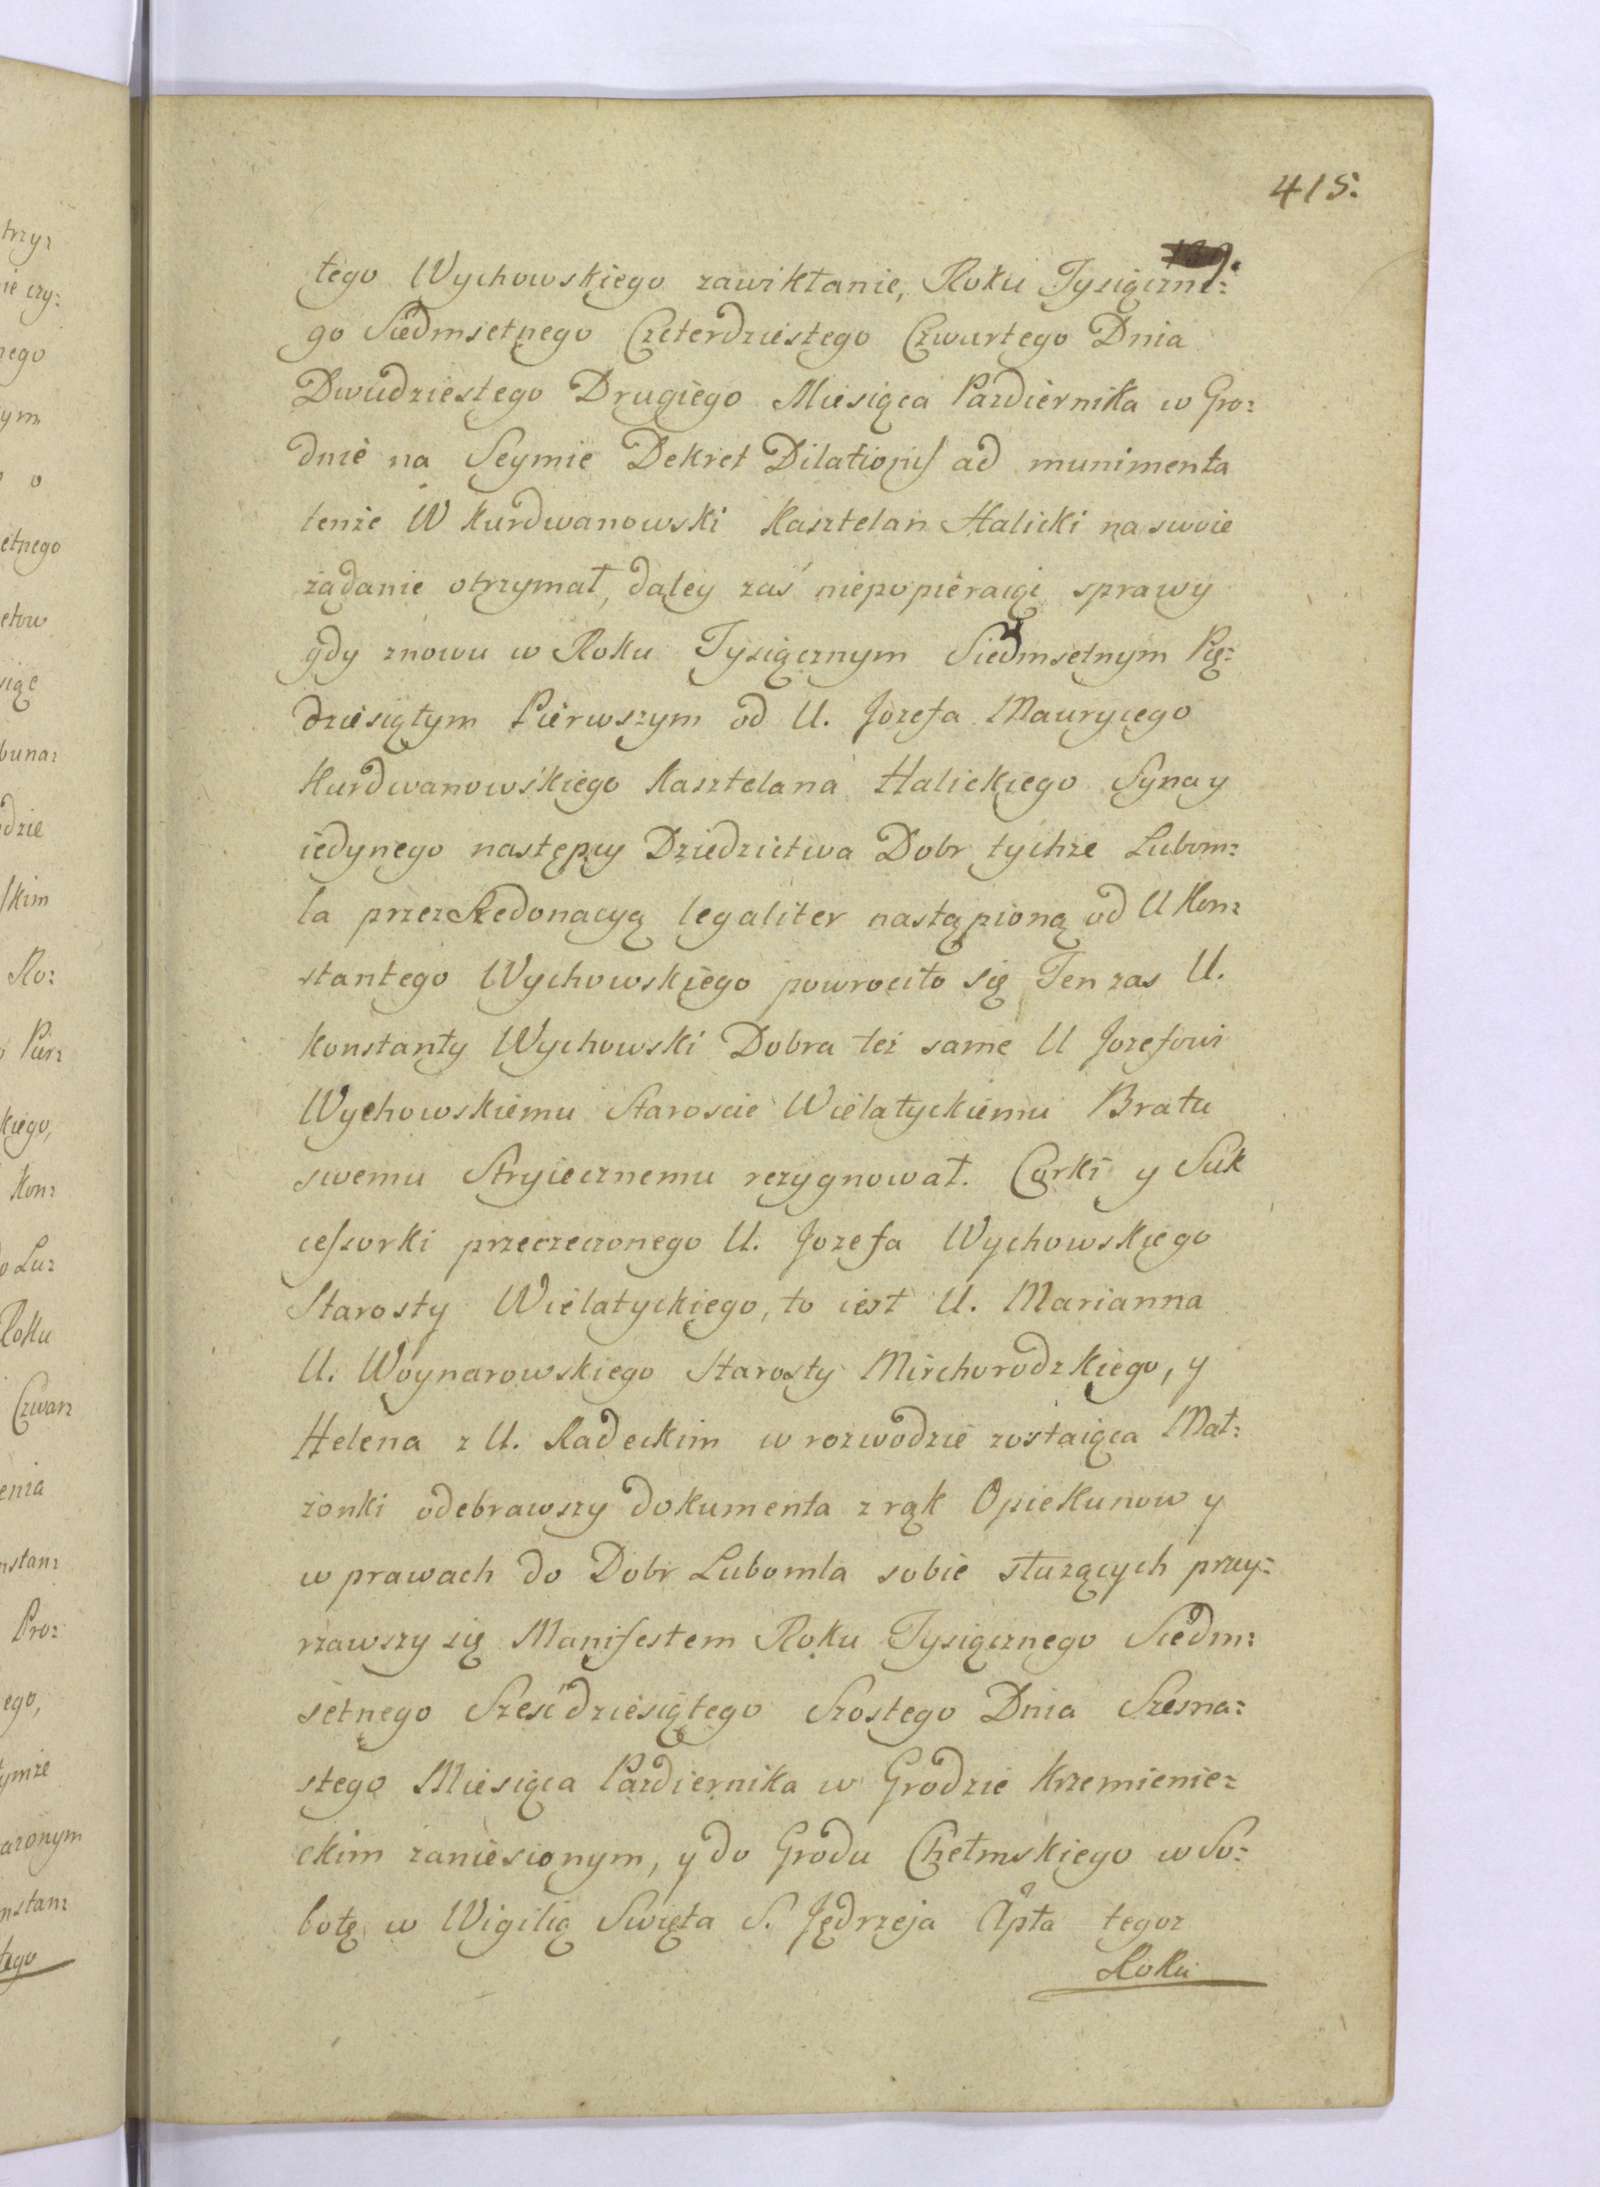 415.
tego Wychowskiego zawikłanie, Roku Tysiączne:
go Siedmsetnego Czeterdziestego Czwartego Dnia
Dwudziestego Drugiego Miesiąca Pazdiernika w Gro:
dnie na Seymie Dekret Dilationis ad munimenta
tenże W Kurdwanowski Kasztelan Halicki na swoie
żądanie otrzymał, daley zaś niepopieraiąc sprawy
gdy znowu w Roku Tysiącznym Siedmsetnym Pię:
dziesiątym Pierwszym od U. Jozefa Maurycego
Kurdwanowskiego Kasztelana Halickiego Syna y
iedynego następcy Dziedzictwa Dobr tychże Lubom:
la przez Redonacyą legaliter nastąpioną od U Kon:
stantego Wychowskiego powrociło się Ten zas U.
Konstanty Wychowski Dobra też same U Jozefowi
Wychowskiemu Staroscie Wielatyckiemu Bratu
swemu Stryiecznemu rezygnował. Corki y Suk
cessorki przeczeczonego U. Jozefa Wychowskiego
Starosty Wielatyckiego, to iest U. Marianna
U. Woynarowskiego Starosty Mirchorodzkiego, y
Helena z U. Radeckim w rozwodzie zostaiąca Mał:
żonki odebrawszy dokumenta z rąk Opiekunow y
w prawach do Dobr Lubomla sobie służących przy:
rzawszy się Manifestem Roku Tysiącznego Siedm:
setnego Sześćdziesiątego Szostego Dnia Szesna:
stego Miesiąca Pazdiernika w Grodzie Krzemienie:
ckim zaniesionym, y do Grodu Chełmskiego w So:
botę w Wigilią Swięta S. Jędrzeja Apła tegoz
Roku
trzy:
ie czy:
nego
ym
o
etnego
etow
siąc
buna:
dzie
lkim
Ro:
Pier:
kiego,
Kon:
o Lu:
Roku
Czwar:
enia
nstan:
Pro:
ego,
ymże
aczonym
nstan:
tego